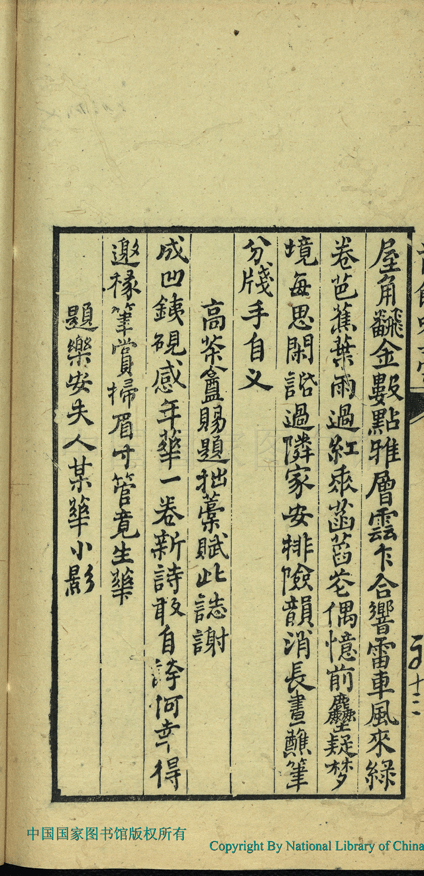 屋角飜金數點雅層雲乍合響雷車風來綠
卷芭蕉葉雨過紅乘菡萏花偶憶前塵疑梦
境每思閑話過隣家安排險韻消長晝蘸筆
分牋手自义
高茶盦賜題拙藁賦此誌謝
成凹銕硯感年華一卷新詩敢自誇何幸得
邀椽筆賞掃眉寸管竟生華
題樂安夫人某華小影
十三
中国国家图书馆版权所有
Copyright By National Library of China